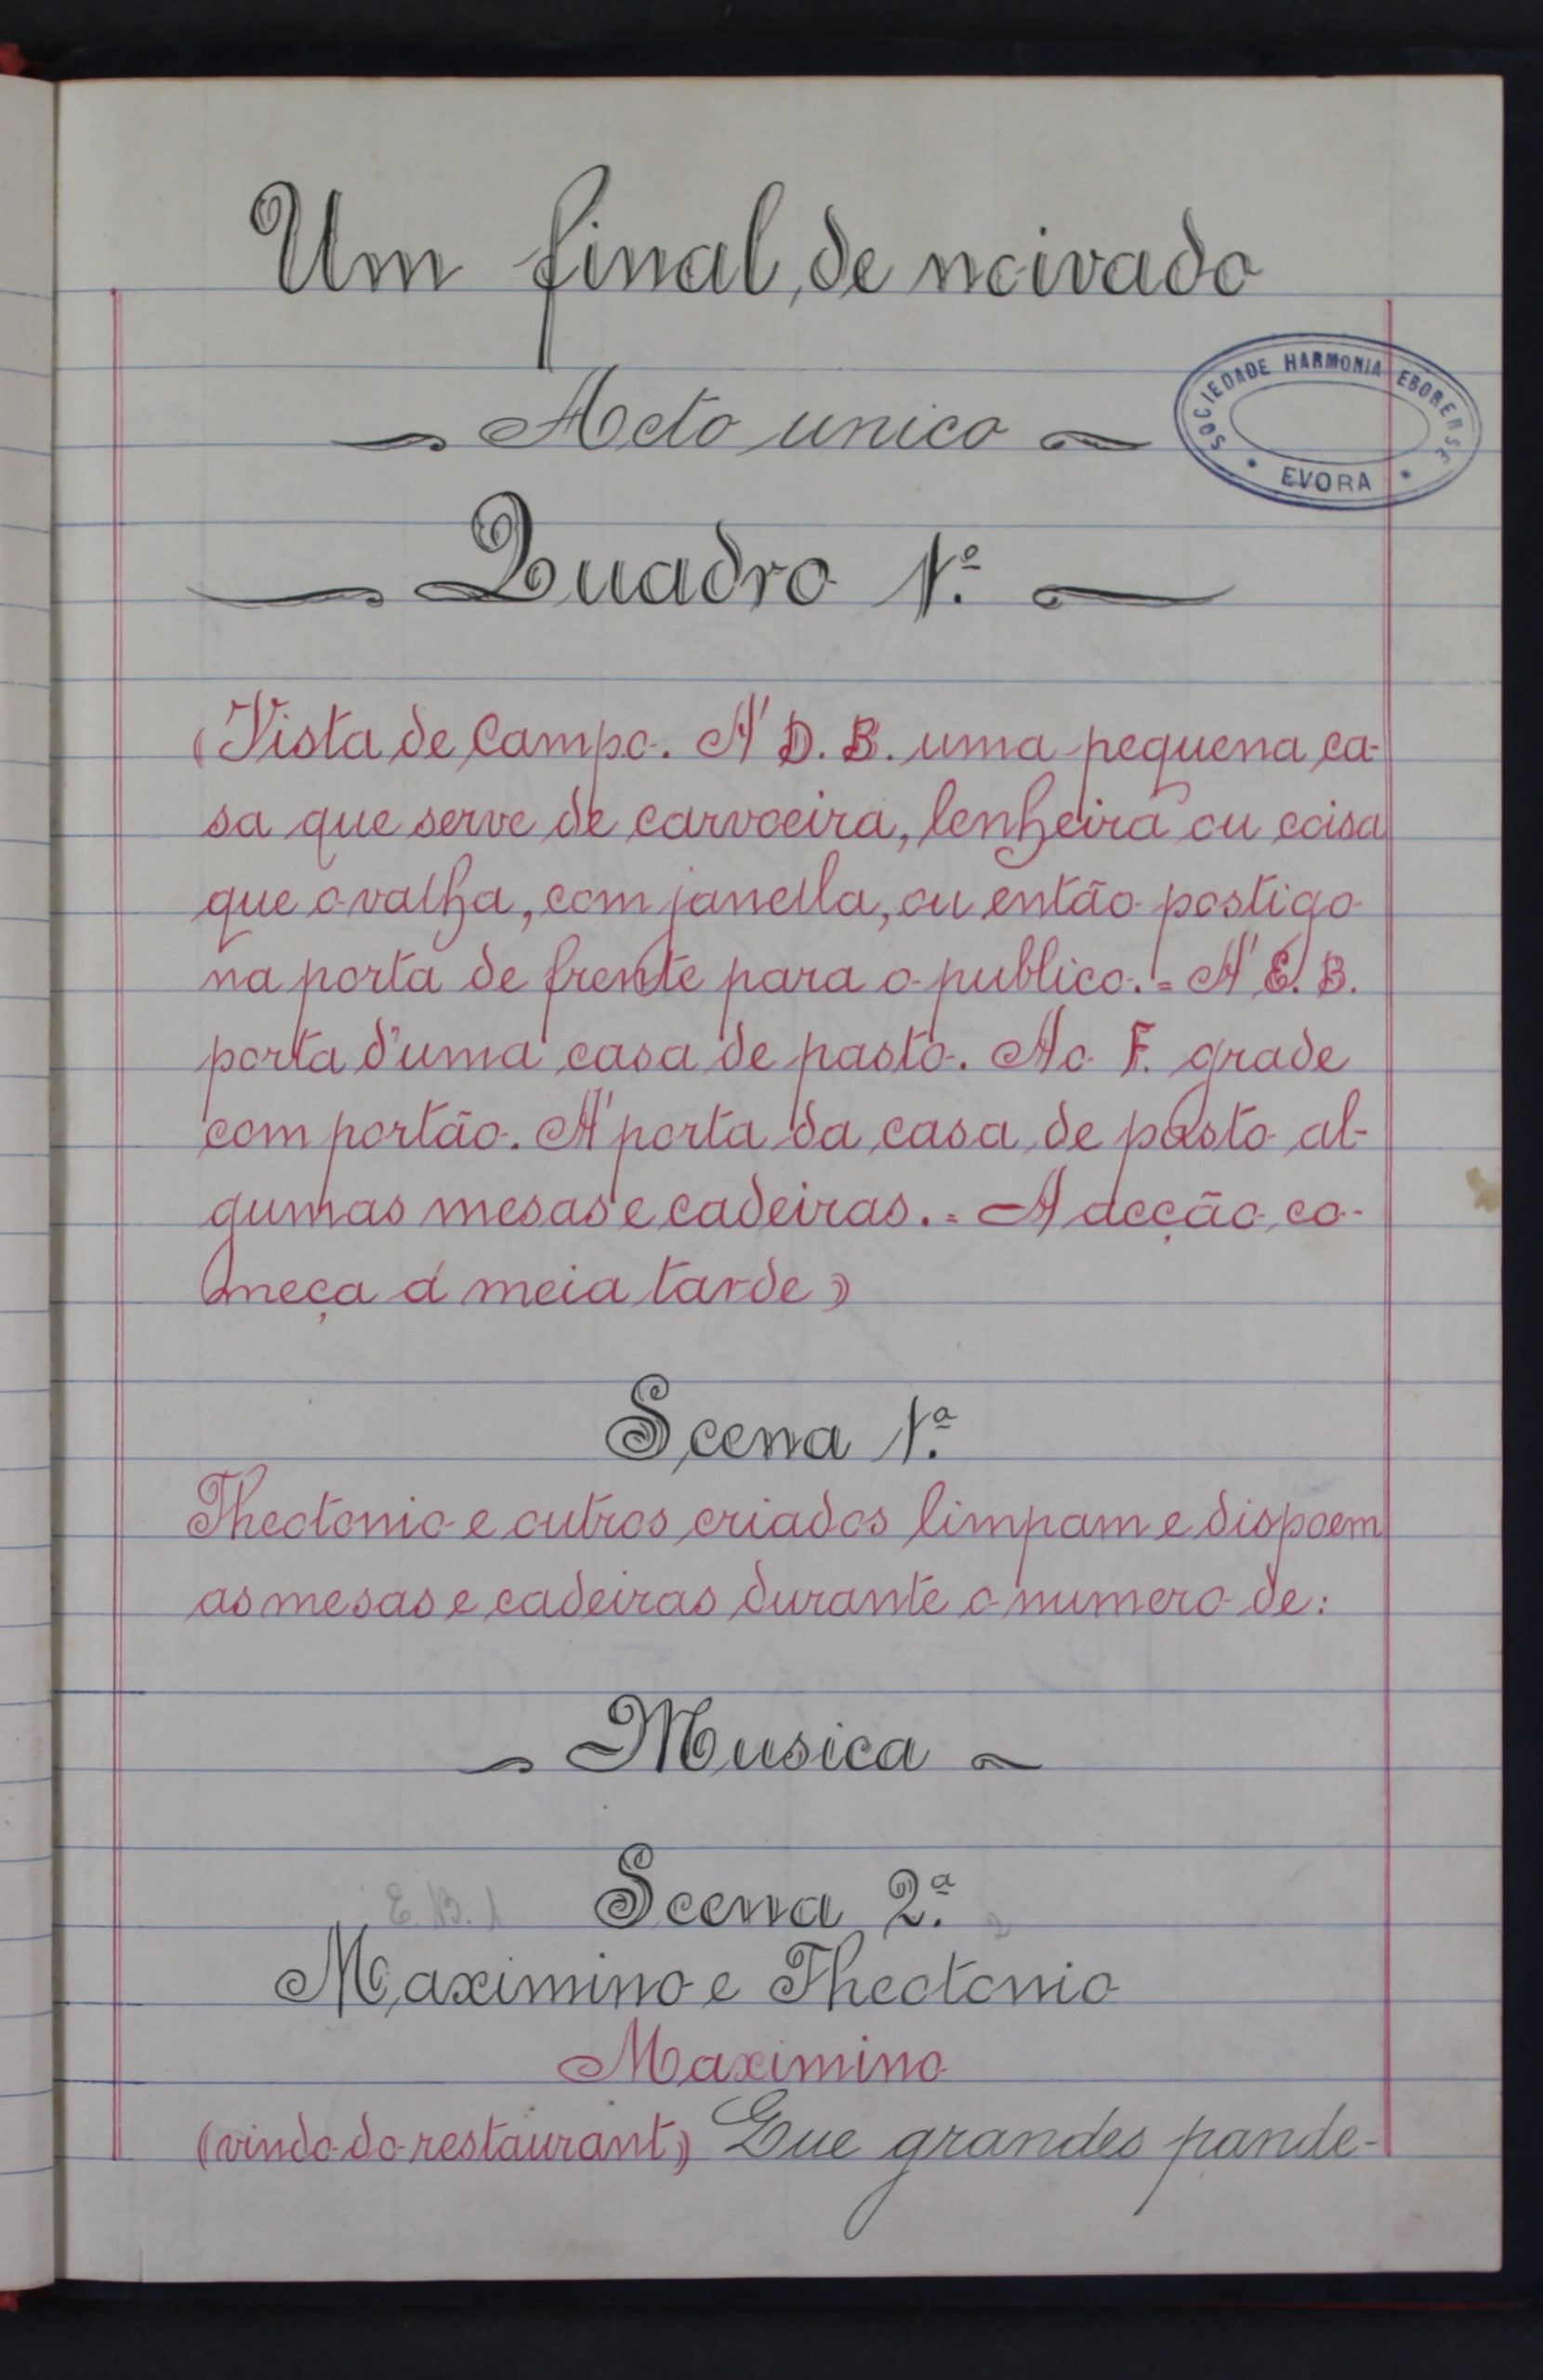 Um final de noivado
Acto unico
SOCIEDADE HARMONIA EBORENSE
* EVORA *
Quadro 1.º
(Vista de campo. A' D. B. uma pequena ca-
sa que serve de carvoeira, lenheira ou coisa
que o valha, com janella, ou então postigo
na porta de frente para o publico. = A' E. B.
porta d'uma casa de pasto. Ao F. grade
com portão. A' porta da casa de pasto al-
gumas mesas e cadeiras. = A acção co-
meça á meia tarde)
Scena 1.ª
Theotonio e outros criados limpam e dispoem
as mesas e cadeiras durante o numero de:
Musica
E. B. 1
Scena 2.ª
2
Maximino e Theotonio
Maximino
(vindo do restaurant) Que grandes pande-